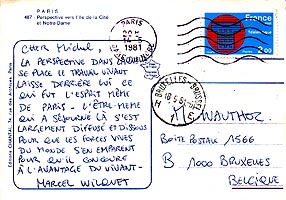 PARIS
467 Perspective vers l'Ile de la Cité
et Notre Dame
CHER Michel,
LA PERSPECTIVE DANS
SE PLACE LE TRAVAIL VIVANT
LAISSE DERRIÈRE LUI CE
QUI FUT L'ESPRIT MÊME
DE PARIS - L'ÊTRE-MÊME
QUI A SÉJOURNÉ LÀ S'EST
LARGEMENT DIFFUSÉ ET
POUR QUE LES FORCES VIVES
DU MONDE S'EN EMPARENT
POUR QU'IL CONCOURE
À L'AVANTAGE DU VIVANT-
MARCEL
PARIS
1981
France
2,00
BRUXELLES-BRUSSEL
M. WAUTHOZ
BOITE POSTALE 1566
B 1000 BRUXELLES
BELGIQUE